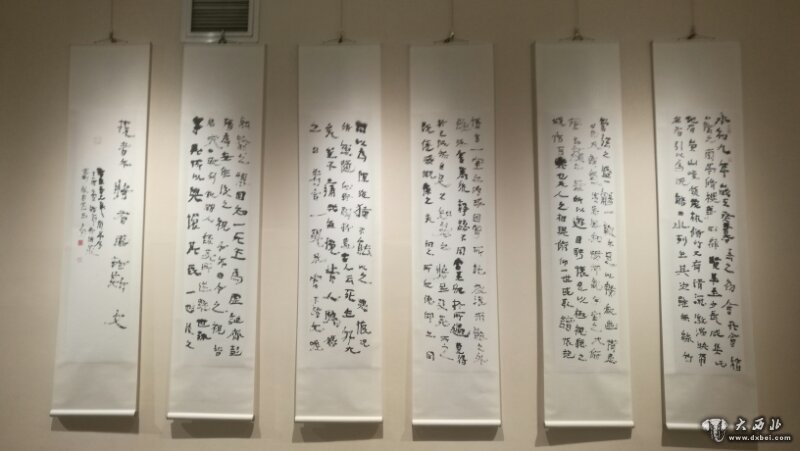 永和九年歲在癸丑暮春之初會于會稽
山陰之蘭亭脩禊事也羣賢畢至少長咸集此
地有崇山峻領茂林修竹又有清流激湍映帶
左右引以為流觴曲水列坐其次雖無絲竹
管弦之盛一觴一詠亦足以暢敘幽情是
日也天朗氣清惠風和暢仰觀宇宙之大俯
察品類之盛所以遊目騁懷足以極視聽之
娛信可樂也夫人之相與俯仰一世或取諸懷抱
悟言一室之內或因寄所託放浪形骸之外
雖趣舍萬殊靜躁不同當其欣於所遇暫得
於己快然自足不知老之將至及其所之
既倦情隨事遷感慨係之矣向之所欣俛仰之間
以為陳迹猶不能不以之興懷況
脩短隨化終期於盡古人云死生亦大
矣豈不痛哉每攬昔人興感
之由若合一契未嘗不臨文嗟
悼不能喻之於懷固知一死生為虛誕齊彭
殤為妄作後之視今亦由今之視昔
悲夫故列敘時人錄其所述雖世殊
事異所以興懷其致一也後之
攬者亦將有感於斯文
大西北
www.dxbei.com